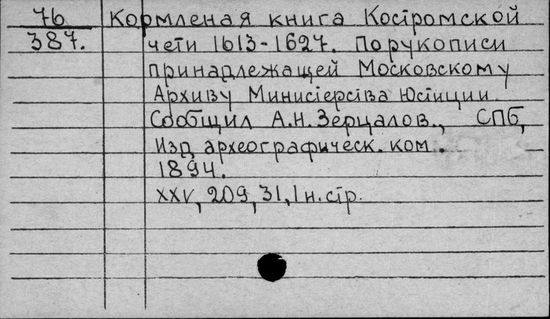 76 Кормленая книга Костромской
387. чети 1613-1627. По рукописи
принадлежащей Московскому
Архиву Министерства Юстиции
Сообщил А.Н. Зерцалов., СПб,
Изд. археографическ. ком.
1894.
XXV, 209, 31, 1 н. стр.